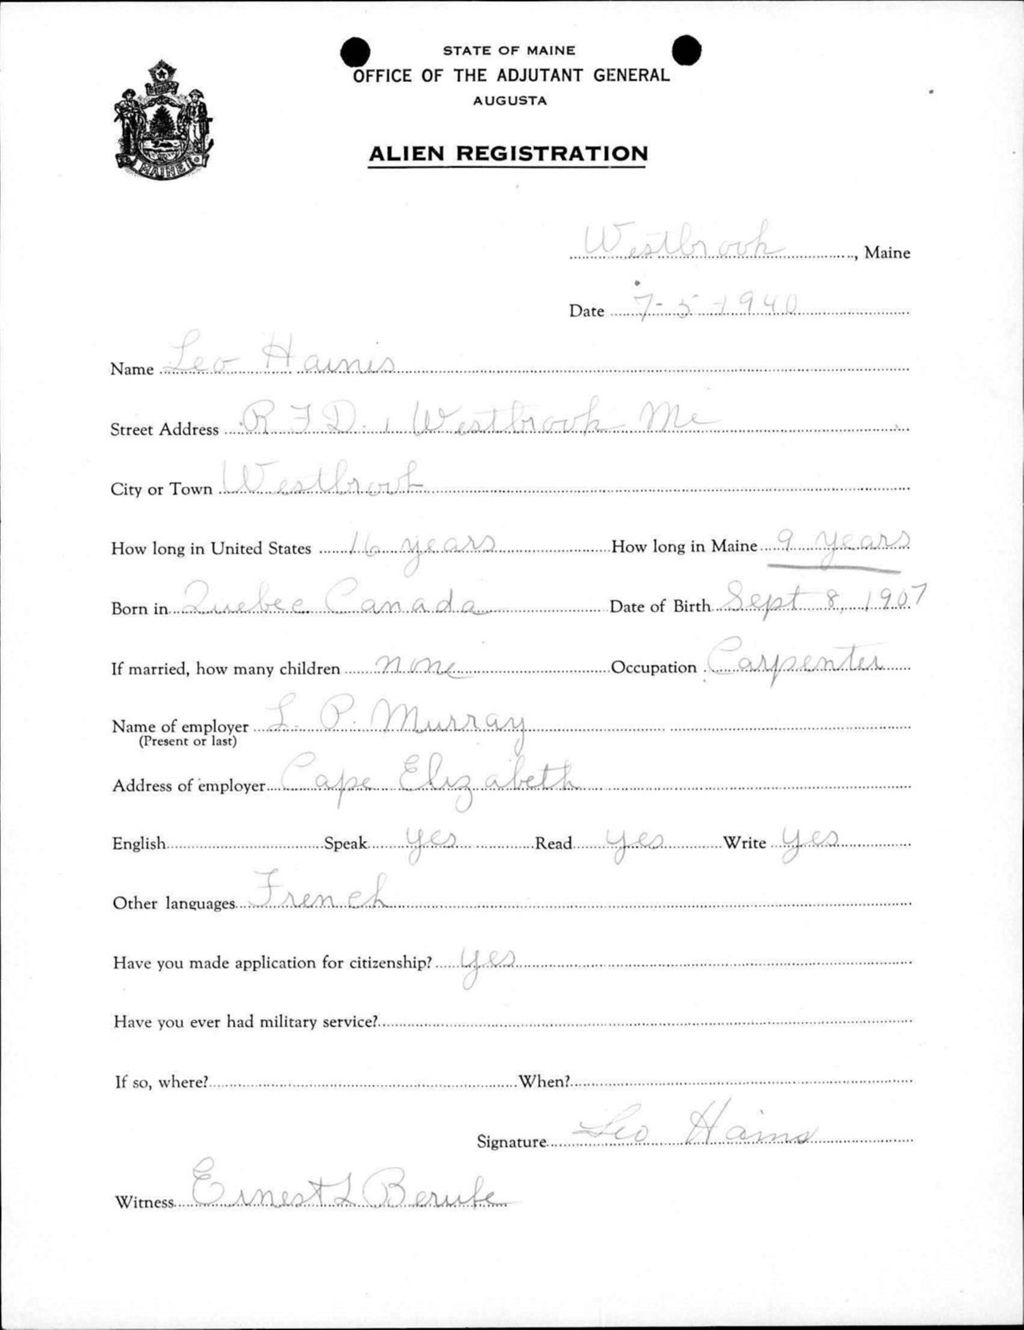 STATE OF MAINE
OFFICE OF THE ADJUTANT GENERAL
AUGUSTA
ALIEN REGISTRATION
MAINE
Westbrook, Maine
Date 7-5-1940
Name Leo Hainis
Street Address R F D. 1 Westbrook Me
City or Town Westbrook
How long in United States 16 years How long in Maine 9 years
Born in Quebec Canada Date of Birth Sept 8, 1907
If married, how many children none Occupation Carpenter
Name of employer L. P. Murray
(Present or last)
Address of employer Cape Elizabeth
English Speak yes Read yes Write yes
Other languages French
Have you made application for citizenship? yes
Have you ever had military service?
If so, where? When?
Signature Leo Hains
Witness Ernest L Berube